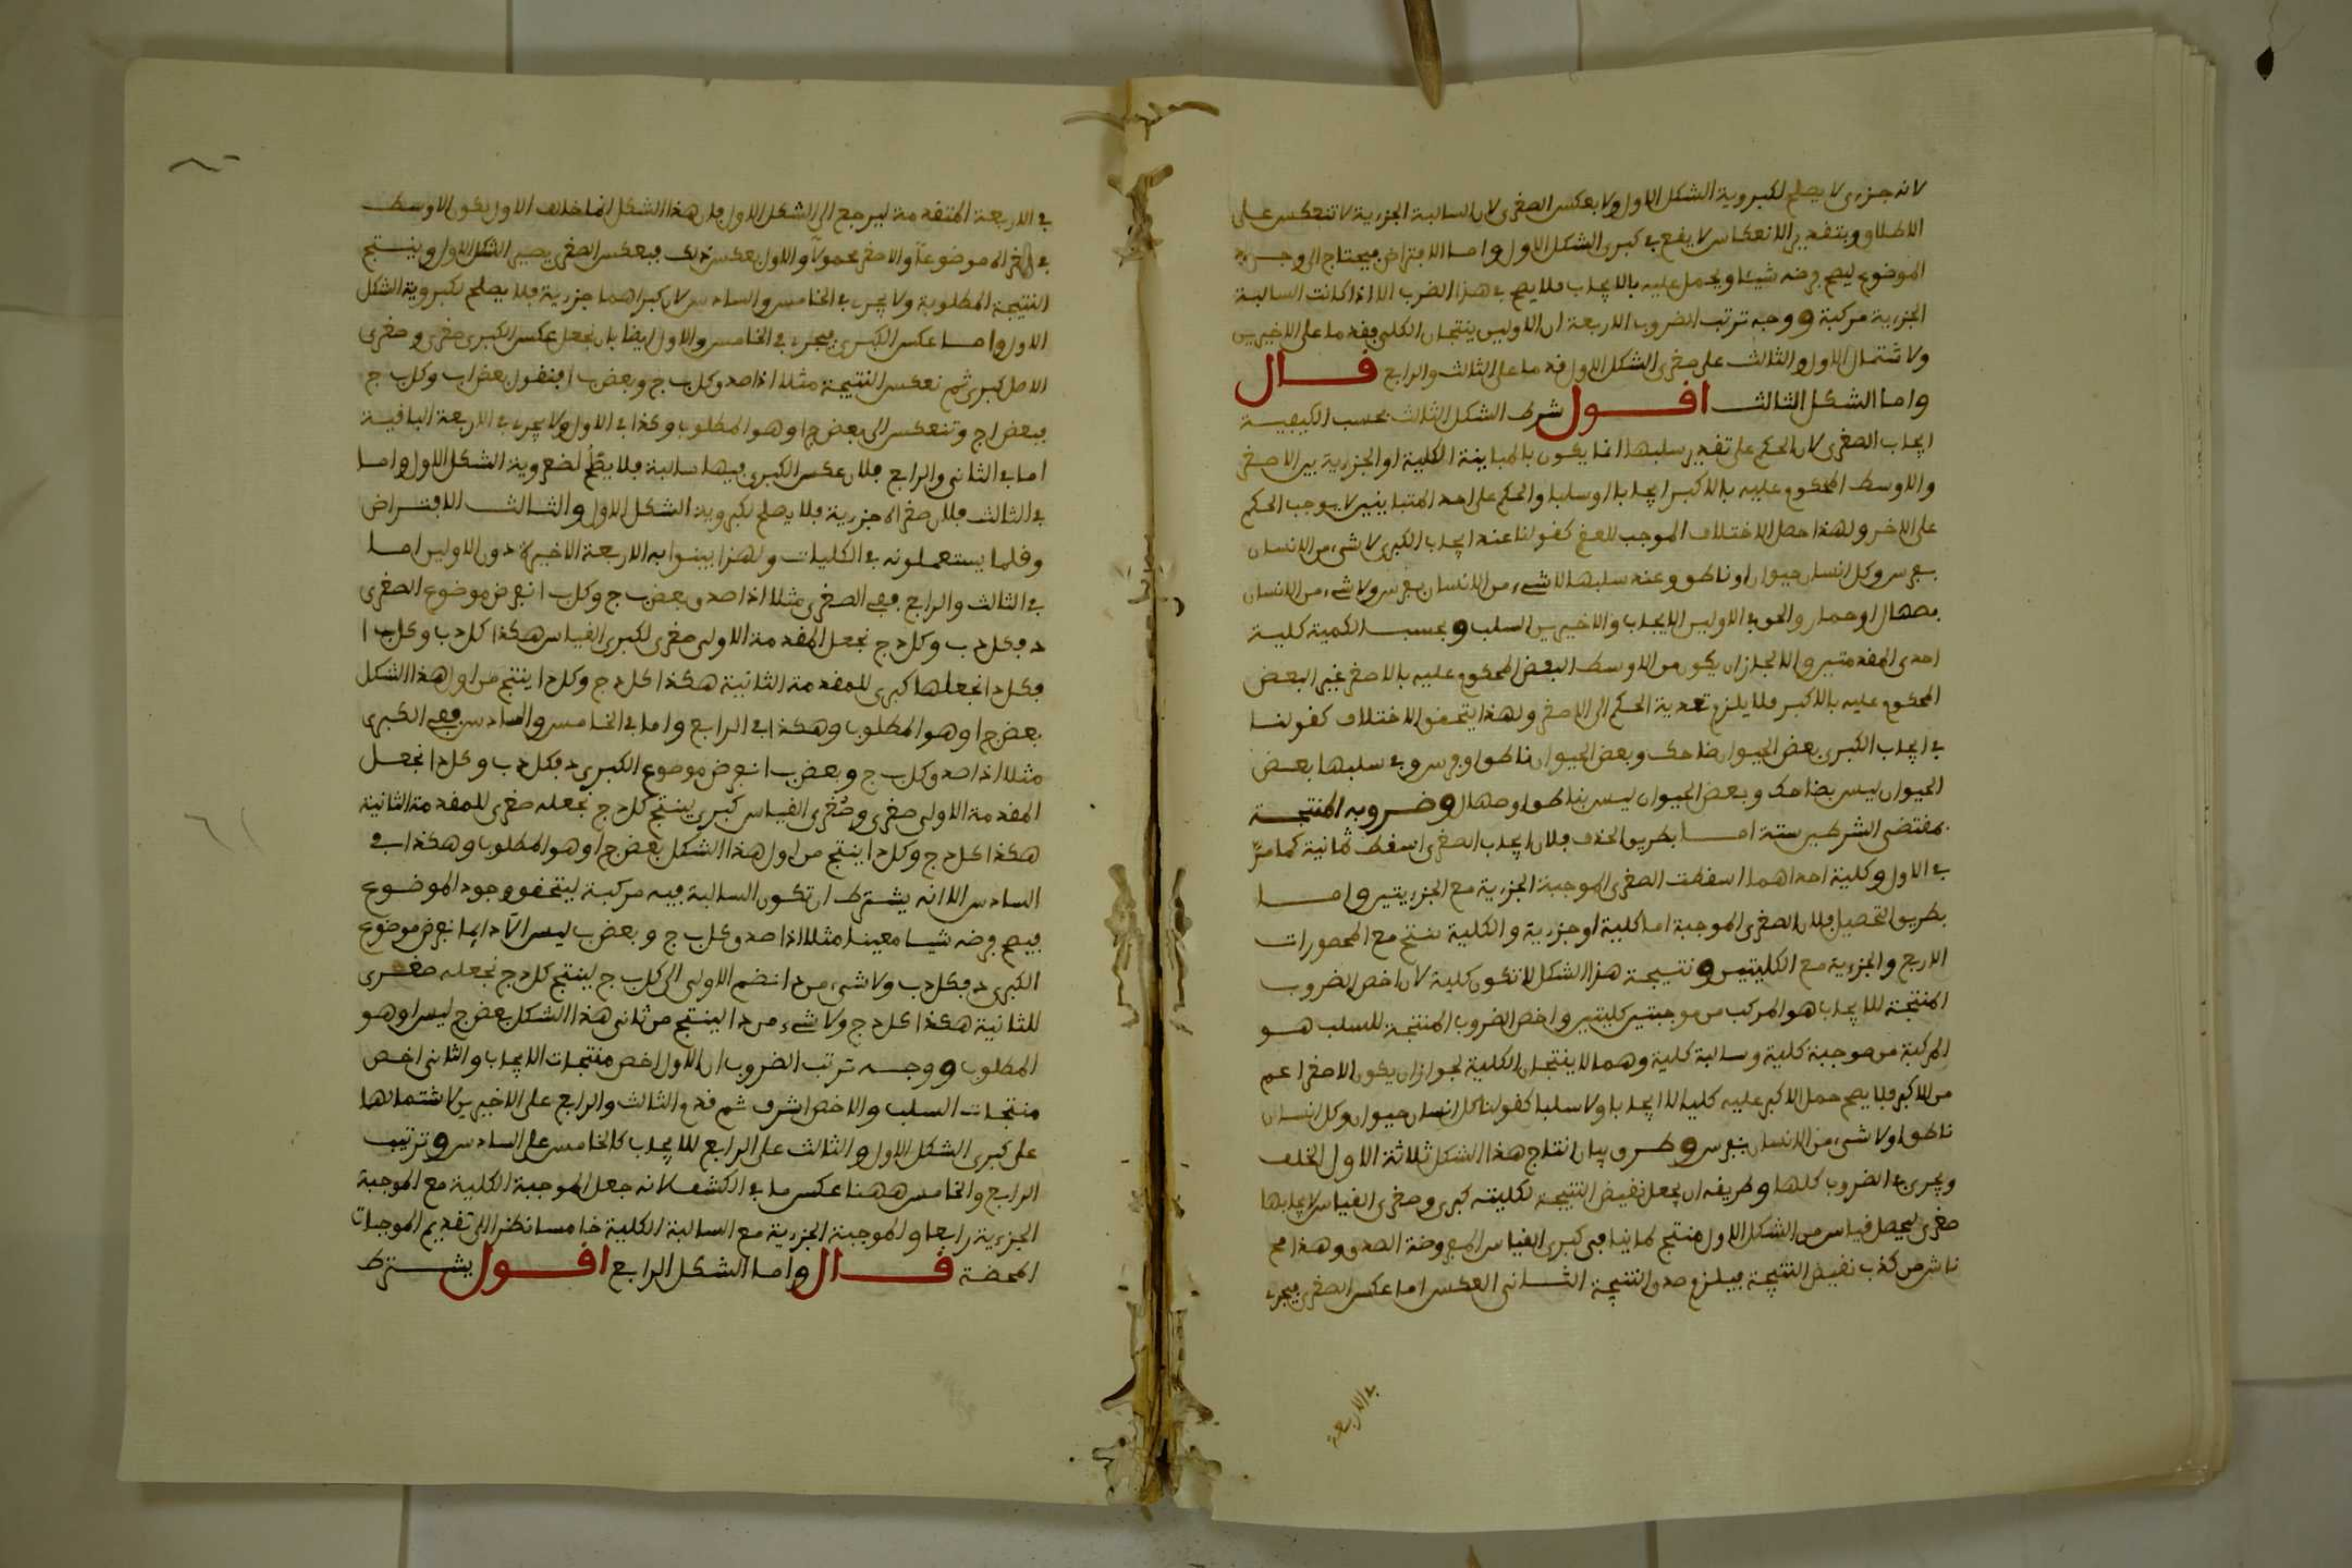 لانه جزءى لا يصلح لكبروية الشكل الاول ولا بعكس الصغرى لان السالبة الجزءية لا تنعكس على
الاطلاق وبتقدير الانعكاس لا يقع في كبرى الشكل الاول واما الافتراض فيحتاج الى وجود
الموضوع ليصح فرضه شيئا ويحمل عليه بالايجاب فلا يصح في هذا الضرب الا اذا كانت السالبة
الجزءية مركبة ووجه ترتب الضروب الاربعة ان الاولين ينتجان الكلي فقدما على الاخيرين
ولاشتمال الاول والثالث على صغرى الشكل الاول قدما على الثالث والرابع قال
واما الشكل الثالث اقول شرط الشكل الثالث بحسب الكيفية
ايجاب الصغرى لان الحكم على تقدير سلبها انما يكون بالمباينة الكلية او الجزءية بين الاصغر
والاوسط المحكوم عليه بالاكبر ايجابا او سلبا والحكم على احد المتباينين لا يوجب الحكم
على الاخر ولهذا حصل الاختلاف الموجب للعقم كقولنا عند ايجاب الكبرى لا شيء من الانسان
بفرس وكل انسان حيوان او ناطق وعند سلبها لا شيء من الانسان بفرس ولا شيء من الانسان
بصهال او حمار والحق في الاولين الايجاب والاخيرين السلب وبحسب الكمية كلية
احدى المقدمتين والا لجاز ان يكون من الاوسط البعض المحكوم عليه بالاصغر غير البعض
المحكوم عليه بالاكبر فلا يلزم تعدية الحكم الى الاصغر ولهذا يتحقق الاختلاف كقولنا
في ايجاب الكبرى بعض الحيوان ضاحك وبعض الحيوان ناطق او فرس وفي سلبها بعض
الحيوان ليس بضاحك وبعض الحيوان ليس بناطق او صهال وضروبه المنتجة
بمقتضى الشرطين ستة اما بطريق الحذف فلان ايجاب الصغرى اسقط ثمانية كما مرّ
في الاول وكلية احداهما اسقطت الصغرى الموجبة الجزءية مع الجزءيتين واما
بطريق التحصيل فلان الصغرى الموجبة اما كلية او جزءية والكلية تنتج مع المحصورات
الاربع والجزءية مع الكليتين ونتيجة هذا الشكل لا تكون كلية لان اخص الضروب
المنتجة للايجاب هو المركب من موجبتين كليتين واخص الضروب المنتجة للسلب هو
المركبة من موجبة كلية وسالبة كلية وهما لا ينتجان الكلية لجواز ان يكون الاصغر اعم
من الاكبر فلا يصح حمل الاكبر عليه كليا لا ايجابا ولا سلبا كقولنا كل انسان حيوان وكل انسان
ناطق او لا شيء من الانسان بفرس وطرق بيان انتاج هذا الشكل ثلاثة الاول الخلف
ويجري في الضروب كلها وطريقه ان يجعل نقيض النتيجة لكليته كبرى وصغرى القياس لايجابها
صغرى ليحصل قياس من الشكل الاول منتج لما ينافى كبرى القياس المفروضة الصدق وهذا مح
ناش من كذب نقيض النتيجة فيلزم صدق النتيجة الثاني العكس اما عكس الصغرى فيجرى
في الاربعة
في الاربعة المتقدمة ليرجع الى الشكل الاول فان هذا الشكل انما خالف الاول بكون الاوسط
في الصغرى موضوعا والاصغر محمولا والاول بعكس ذلك فبعكس الصغرى يصير الشكل الاول وينتج
النتيجة المطلوبة ولا يجري في الخامس والسادس لان كبراهما جزءية فلا يصلح لكبروية الشكل
الاول واما عكس الكبرى فيجرى في الخامس والاول ايضا بان نجعل عكس الكبرى صغرى وصغرى
الاصل كبرى ثم نعكس النتيجة مثلا اذا صدق كل ب ج وبعض ب ا فنقول بعض ا ب وكل ب ج
فبعض ا ج وتنعكس الى بعض ج ا وهو المطلوب وكذا في الاول ولا يجرى في الاربعة الباقية
اما في الثاني والرابع فلان عكس الكبرى فيها سالبة فلا يصلح لصغروية الشكل الاول واما
في الثالث فلان صغراه جزءية فلا يصلح لكبروية الشكل الاول والثالث الافتراض
وقلما يستعملونه في الكليات ولهذا بينوا به الاربعة الاخيرة دون الاولين اما
في الثالث والرابع ففي الصغرى مثلا اذا صدق بعض ب ج وكل ب ا نفرض موضوع الصغرى
د فكل د ب وكل د ج نجعل المقدمة الاولى صغرى لكبرى القياس هكذا كل د ب وكل ب ا
فكل د ا نجعلها كبرى للمقدمة الثانية هكذا كل د ج وكل د ا ينتج من اول هذا الشكل
بعض ج ا وهو المطلوب وهكذا في الرابع واما في الخامس والسادس ففي الكبرى
مثلا اذا صدق كل ب ج وبعض ب ا نفرض موضوع الكبرى د فكل د ب وكل د ا نجعل
المقدمة الاولى صغرى وصغرى القياس كبرى ينتج كل د ج نجعله صغرى للمقدمة الثانية
هكذا كل د ج وكل د ا ينتج من اول هذا الشكل بعض ج ا وهو المطلوب وهكذا في
السادس الا انه يشترط ان تكون السالبة فيه مركبة ليتحقق وجود الموضوع
فيصح فرضه شيا معينا مثلا اذا صدق كل ب ج وبعض ب ليس ا لا دايما نفرض موضوع
الكبرى د فكل د ب ولا شيء من د ا نضم الاولى الى كل ب ج لينتج كل د ج نجعله صغرى
للثانية هكذا كل د ج ولا شيء من د ا لينتج من ثاني هذا الشكل بعض ج ليس ا وهو
المطلوب ووجه ترتب الضروب ان الاول اخص منتجات الايجاب والثاني اخص
منتجات السلب والاخص اشرف ثم قدم الثالث والرابع على الاخيرين لاشتمالها
على كبرى الشكل الاول والثالث على الرابع للايجاب كالخامس على السادس وترتيب
الرابع والخامس ههنا عكس ما في الكشف لانه جعل الموجبة الكلية مع الموجبة
الجزءية رابعا والموجبة الجزءية مع السالبة الكلية خامسا نظرا الى تقديم الموجبات
المحضة قال واما الشكل الرابع اقول يشترط